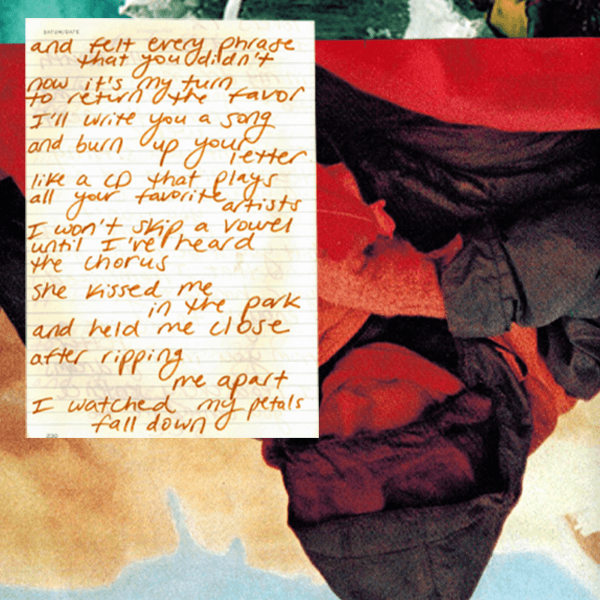 DATUM/DATE
and felt every phrase
that you didn't
now it's my turn
to return the favor
I'll write you a song
and burn up your
letter
like a CD that plays
all your favorite
artists
I won't skip a vowel
until I've heard
the chorus
she kissed me
in the park
and held me close
after ripping
me apart
I watched my petals
fall down